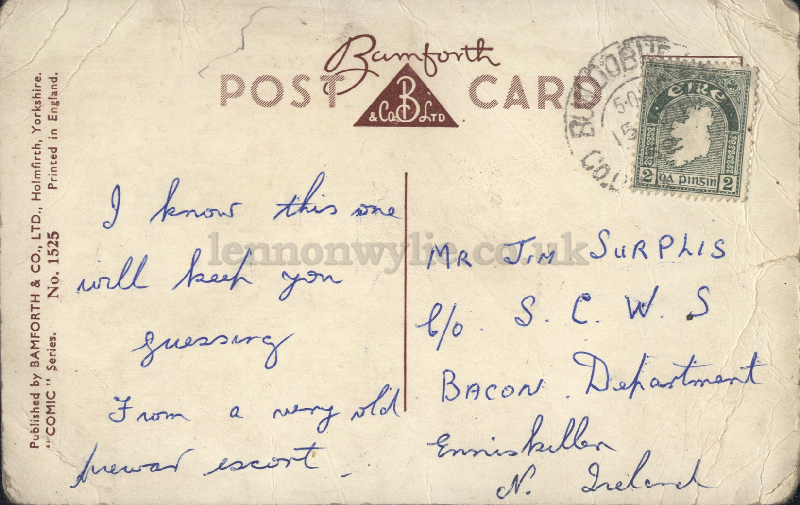 Bamforth
POST CARD
B
& Co. LTD
Published by BAMFORTH & CO., LTD., Holmfirth, Yorkshire.
"COMIC" Series. No. 1525 Printed in England.
BUNDORAN
CO.
ÉIRE
2 2
I know this one
will keep you
guessing
From a very old
prewar escort.
MR JIM SURPLIS
c/o. S. C. W. S
BACON. Department
Enniskillen
N. Ireland
lennonwylie.co.uk